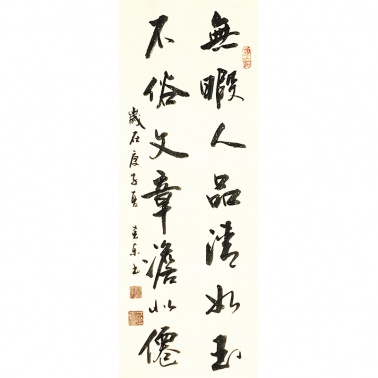 無暇人品清如玉
不俗文章澹似僊
歲在庚子夏